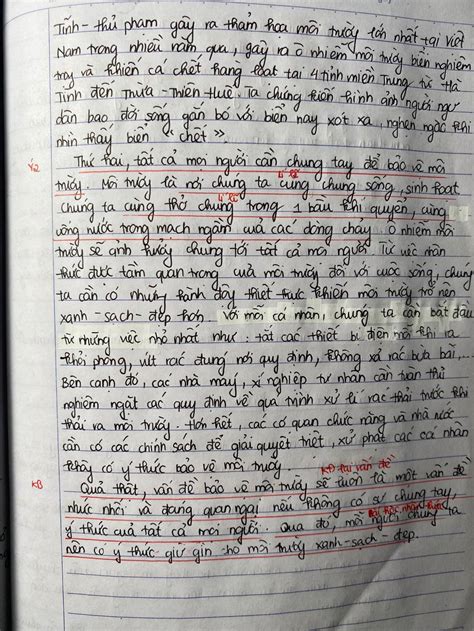 Tĩnh - thủ phạm gây ra thảm họa môi trường lớn nhất tại Việt
Nam trong nhiều năm qua, gây ra ô nhiễm môi trường biển nghiêm
trọng và khiến cá chết hàng loạt tại 4 tỉnh miền Trung từ Hà
Tĩnh đến Thừa - Thiên Huế. Ta chứng kiến hình ảnh người ngư
dân bao đời sống gắn bó với biển nay xót xa, nghẹn ngào khi
nhìn thấy biển "chết".
Thứ hai, tất cả mọi người cần chung tay để bảo vệ môi
trường. Môi trường là nơi chúng ta cùng chung sống, sinh hoạt.
Chúng ta cùng thở chung trong 1 bầu khí quyển, cùng
uống nước trong mạch ngầm của các dòng chảy. Ô nhiễm môi
trường sẽ ảnh hưởng chung tới tất cả mọi người. Từ việc nhận
thức được tầm quan trọng của môi trường đối với cuộc sống, chúng
ta cần có những hành động thiết thực khiến môi trường trở nên
xanh - sạch - đẹp hơn. Với mỗi cá nhân, chúng ta cần bắt đầu
từ những việc nhỏ nhất như: tắt các thiết bị điện mỗi khi ra
khỏi phòng, vứt rác đúng nơi quy định, không xả rác bừa bãi,...
Bên cạnh đó, các nhà máy, xí nghiệp tư nhân cần tuân thủ
nghiêm ngặt các quy định về quá trình xử lí rác thải trước khi
thải ra môi trường. Hơn hết, các cơ quan chức năng và nhà nước
cần có các chính sách để giải quyết triệt, xử phạt các cá nhân
không có ý thức bảo vệ môi trường.
KĐ lại vấn đề
KB
Quả thật, vấn đề bảo vệ môi trường sẽ luôn là một vấn đề
nhức nhối và đáng quan ngại nếu không có sự chung tay,
Bài học nhận thức
ý thức của tất cả mọi người. Qua đó, mỗi người chúng ta
nên có ý thức giữ gìn cho môi trường xanh - sạch - đẹp.